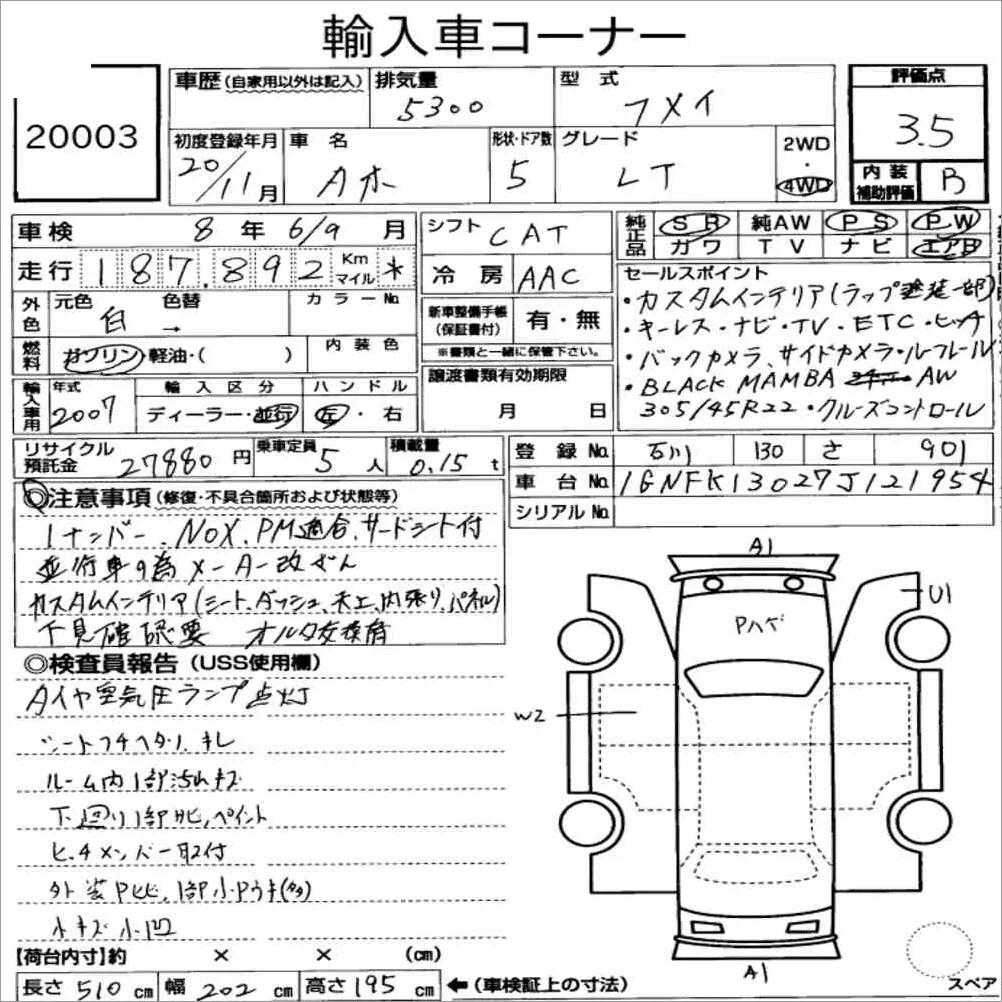 輸入車コーナー
20003
車歴 (自家用以外は記入)
排気量 5300
型式 フメイ
評価点 3.5
初度登録年月 20/11月
車名 Aホ
形状・ドア数 5
グレード LT
2WD・4WD
内装補助評価 B
車検 8年 6/9月
シフト CAT
純正品 SR 純AW PS PW
カワ TV ナビ エアB
走行 187,892 Km マイル *
冷房 AAC
外色 元色 白 → 色替 カラーNo
新車整備手帳(保証書付) 有・無
※書類と一緒に保管下さい。
燃料 ガソリン・軽油・( ) 内装色
輸入車用 年式 2007 輸入区分 ディーラー・並行 ハンドル 左・右
譲渡書類有効期限 月 日
セールスポイント
・カスタムインテリア(ラップ塗装一部)
・キーレス・ナビ・TV・ETC・ヒッチ
・バックカメラ、サイドカメラ・ルーフレール
・BLACK MAMBA AW
305/45R22・クルーズコントロール
リサイクル預託金 27880円
乗車定員 5人
積載量 0.15t
登録No. 石川 130 さ 901
車台No. 1GNFK13027J121954
シリアルNo.
◎注意事項(修復・不具合箇所および状態等)
1ナンバー、NOX、PM適合、サードシート付
並行車の為メーター改ざん
カスタムインテリア(シート、ダッシュ、天上、内張り、パネル)
下見確認要 オルタ交換有
◎検査員報告(USS使用欄)
タイヤ空気圧ランプ点灯
シートフチヘタリ、キレ
ルーム内1部汚れキズ
下回り1部サビ、ペイント
ヒッチメンバー取付
外装Pヒビ、1部小Pウキ(多)
小キズ小凹
A1
U1
Pハゲ
W2
A1
【荷台内寸】約 × × (cm)
長さ 510 cm 幅 202 cm 高さ 195 cm ←(車検証上の寸法)
スペア